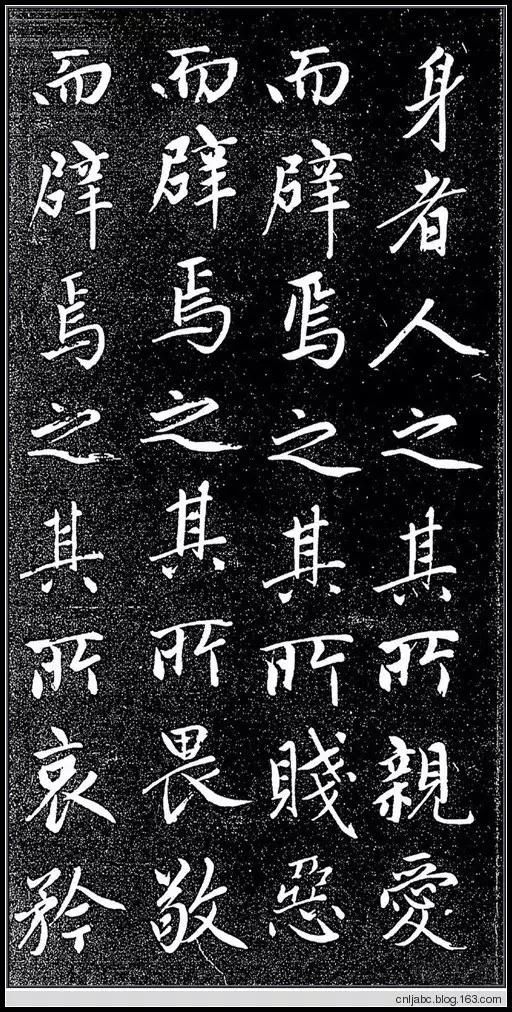 身者人之其所親愛
而辟焉之其所賤惡
而辟焉之其所畏敬
而辟焉之其所哀矜
cnljabc.blog.163.com